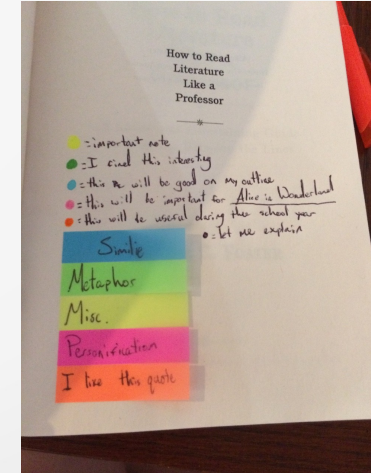 How to Read
Literature
Like a
Professor
=important note
=I find this interesting
=this will be good on my outline
=this will be important for Alice in Wonderland
=this will be useful during the school year
=let me explain
Similie
Metaphor
Misc.
Personification
I like this quote